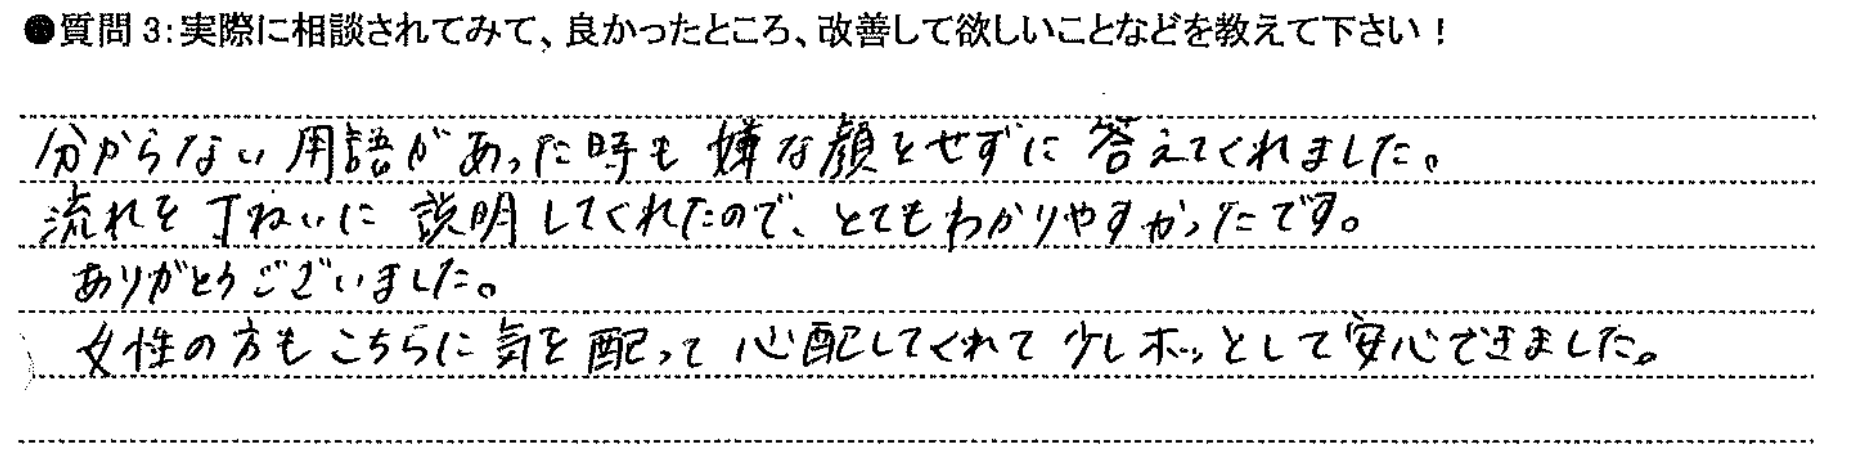 ●質問3:実際に相談されてみて、良かったところ、改善して欲しいことなどを教えて下さい!
分からない用語があった時も嫌な顔をせずに答えてくれました。
流れを丁ねいに説明してくれたので、とてもわかりやすかったです。
ありがとうございました。
女性の方もこちらに気を配って心配してくれて少しホッとして安心できました。